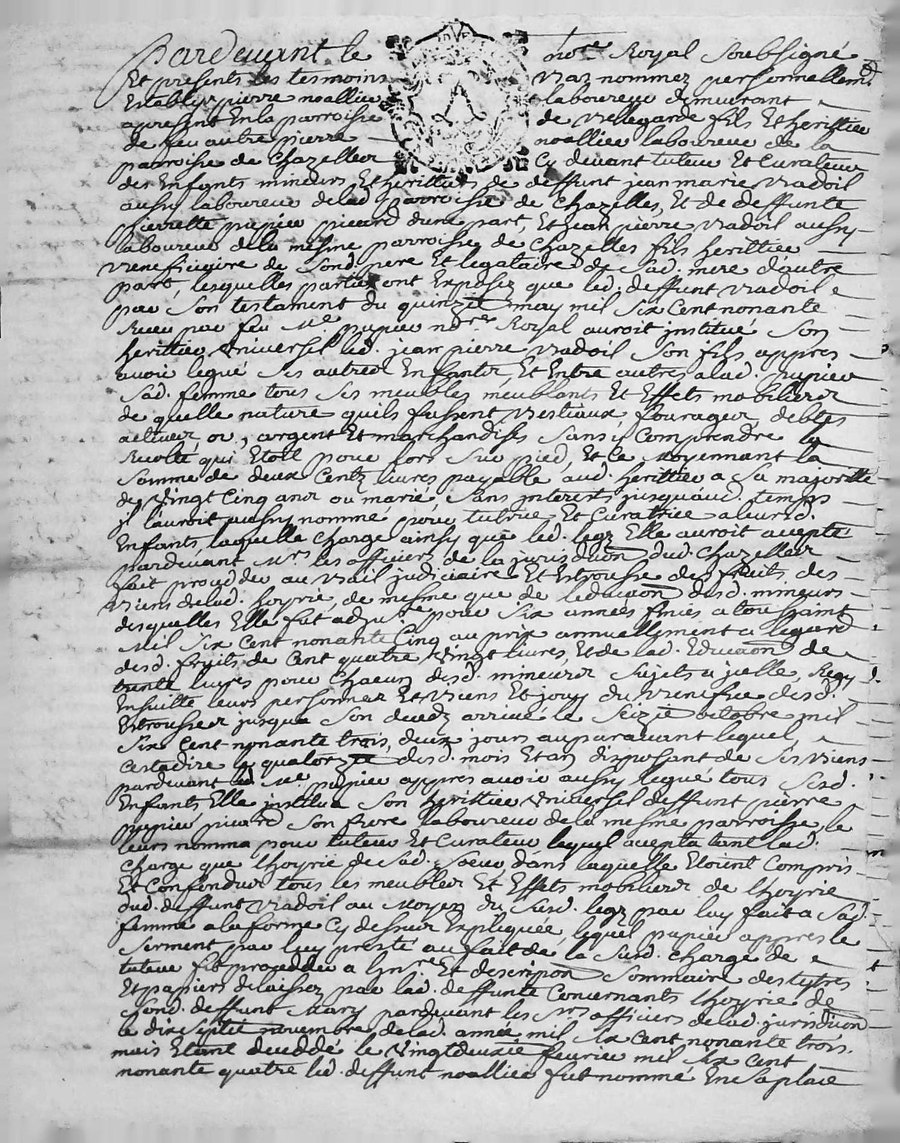 Pardevant le no.re Royal Soubsigné
Et présents les tesmoins bas nommez personnellem.t
Estably pierre noallier laboureur demeurant
apresent En la parroisse de Bellegarde fils Et herittier
de feu autre pierre noallier laboureur de la
parroisse de Chazelles Cy devant tuteur Et Curateur
des Enfants mineurs Et herittiers de deffunt jean marie Viadoil
aussy laboureur de lad. parroisse de Chazelles, Et de deffunte
pierrette papier picard dune part, Et jean pierre Viadoil aussy
laboureur de la mesme parroisse de Chazelles fils herittier
beneficiaire de Sond. pere Et legataire de Sad. mere d'autre
part, lesquelles parties ont Exposez que led. deffunt Viadoil
par Son testament du quinzie may mil Six Cent nonante
Receu par feu Me papier no.re Royal auroit institué Son
herittier Universel led. jean pierre Viadoil Son fils appres
avoir legué Ses autres Enfants, Et Entre autres a lad. papier
Sad. femme tous Ses meubles meublants Et Effets mobiliers
de quelle nature quils fussent bestiaux, fourages, debtes
actives, or, argent Et marchandises Sans y Comprendre la
Recolte qui Etoit pour lors Sur pied, Et Ce moyennant la
Somme de deux Centz livres payable aud. herittier a Sa majorité
de Vingt Cinq ans ou marié, Sans interest jusquaud. temps
jl lauroit aussy nommé pour tutrice Et Curatrice a leursd.
Enfants, laquelle charge ainsy que led. legz Elle auroit accepté
pardevant Mrs les officiers de la jurisdi͠on dud. Chazelles
fait proceder au bail judiciaire Et Estrousse des fruits des
biens de lad. hoyrie, de mesme que de leduca͠on desd. mineurs
desquelles Elle fut adju.re pour Six années finies a toussaint
Mil Six Cent nonante Cinq au prix annuellement a legard
desd. fruits de Cent quatre Vingt livres, Et de lad. Educa͠on de
trente livres pour chacun desd. mineurs Sujets a jcelle, Regy
Ensuitte leurs personnes Et biens Et jouy du benefice desd.
Estrousses jusqua Son decedz arrivé le Seizie octobre mil
Six Cent nonante trois, deux jours auparavant lequel
cestadire le quatorzie desd. mois Et an disposant de Ses biens
pardevant led. Me papier appres avoir aussy legué tous Sesd.
Enfants Elle institua Son herittier Universel deffunt pierre
papier picard Son frere laboureur de la mesme parroisse, le
leurs nomma pour tuteur Et Curateur lequel accepta tant lad.
charge que lhoyrie de Sad. Soeur dans laquelle Etoient Compris
Et Confondus tous les meubles Et Effets mobiliers de lhoyrie
dud. deffunt Viadoil au moyen du Susd. legz par luy fait a Sad.
femme a la forme Cy dessus Expliquée, lequel papier appres le
Serment par luy presté au fait de la Susd. charge de
tuteur fit proceder a Jnv.re Et descri͠pon Sommaire des tytres
Et papiers delaissez par lad. deffunte Concernants lhoyrie de
Sond. deffunt Mary pardevant les Srs officiers de lad. jurisdi͠on
le dix Septie novembre de lad. année mil Six Cent nonante trois.
mais Etant decedé le Vingt deuxie fevrier mil Six Cent
nonante quatre led. deffunt noallier fut nommé En Sa place